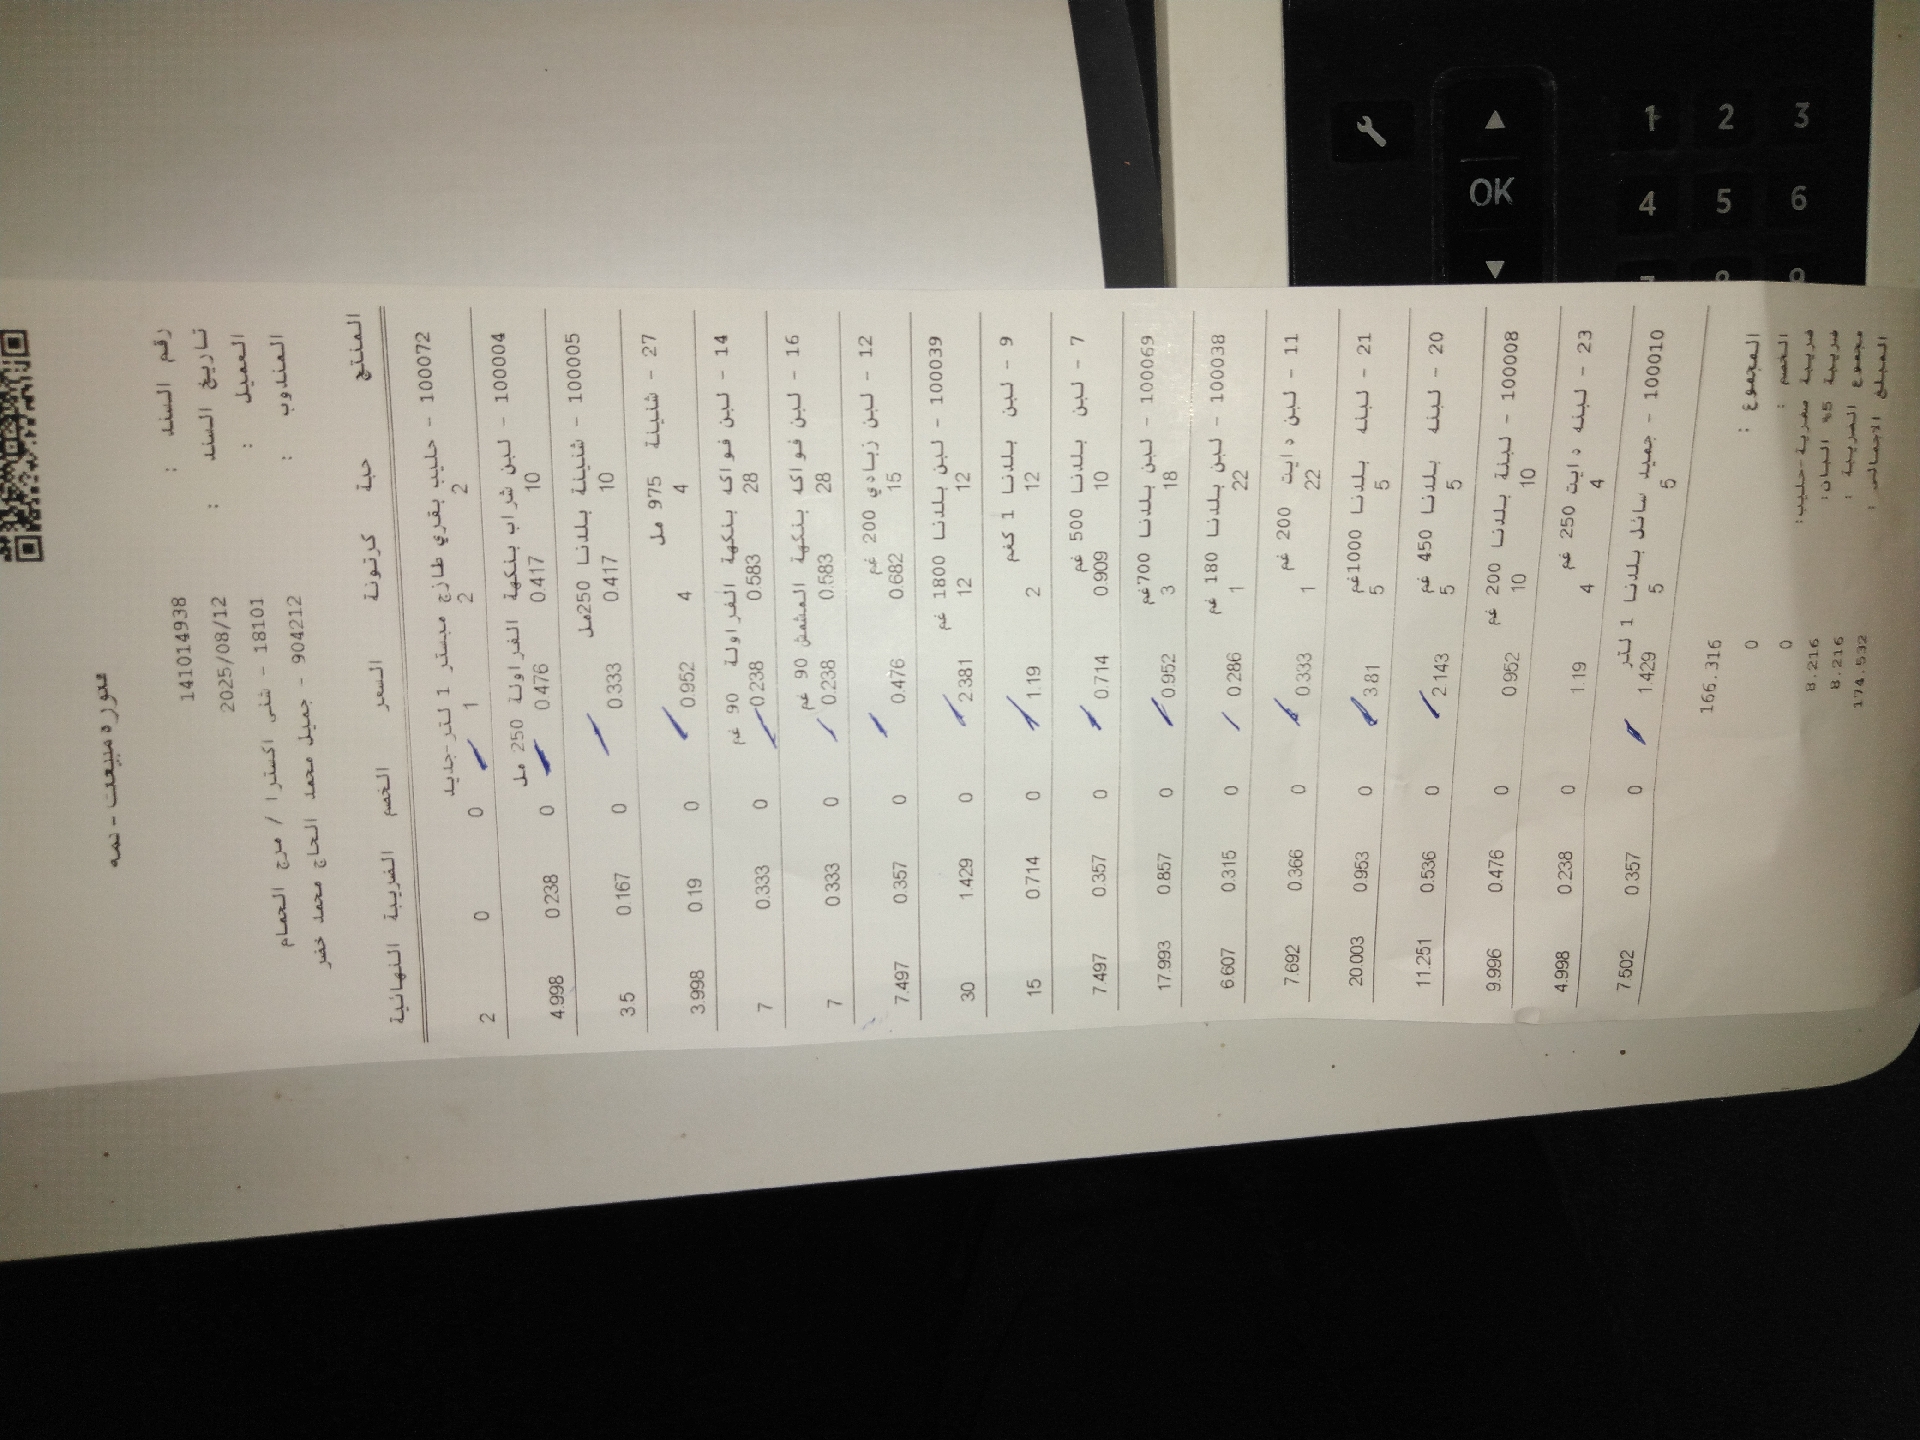 فوترة مبيعات - ذمه
رقم السند : 141014938
تاريخ السند : 2025/08/12
العميل : 18101 - شني اكسترا / مرج الحمام
المندوب : 904212 - جميل محمد الحاج محمد خضر
المنتج حبة كرتونة السعر الخصم الضريبة النهائية
100072 - حليب بقري طازج مبستر 1 لتر-جديد
2 2 1 0 0 2
100004 - لبن شراب بنكهة الفراولة 250 مل
10 0.417 0.476 0 0.238 4.998
100005 - شنينة بلدنا 250مل
10 0.417 0.333 0 0.167 3.5
27 - شنينة 975 مل
4 4 0.952 0 0.19 3.998
14 - لبن فواكه بنكهة الفراولة 90 غم
28 0.583 0.238 0 0.333 7
16 - لبن فواكه بنكهة المشمش 90 غم
28 0.583 0.238 0 0.333 7
12 - لبن زبادي 200 غم
15 0.682 0.476 0 0.357 7.497
100039 - لبن بلدنا 1800 غم
12 12 2.381 0 1.429 30
9 - لبن بلدنا 1 كغم
12 2 1.19 0 0.714 15
7 - لبن بلدنا 500 غم
10 0.909 0.714 0 0.357 7.497
100069 - لبن بلدنا 700غم
18 3 0.952 0 0.857 17.993
100038 - لبن بلدنا 180 غم
22 1 0.286 0 0.315 6.607
11 - لبن دايت 200 غم
22 1 0.333 0 0.366 7.692
21 - لبنه بلدنا 1000غم
5 5 3.81 0 0.953 20.003
20 - لبنه بلدنا 450 غم
5 5 2.143 0 0.536 11.251
100008 - لبنة بلدنا 200 غم
10 10 0.952 0 0.476 9.996
23 - لبنه دايت 250 غم
4 4 1.19 0 0.238 4.998
100010 - جميد سائل بلدنا 1 لتر
5 5 1.429 0 0.357 7.502
المجموع : 166.316
الخصم : 0
ضريبة صفرية-حليب: 0
ضريبة 5% البان: 8.216
مجموع الضريبة : 8.216
المبلغ الاجمالي : 174.532
OK
1 2 3
4 5 6